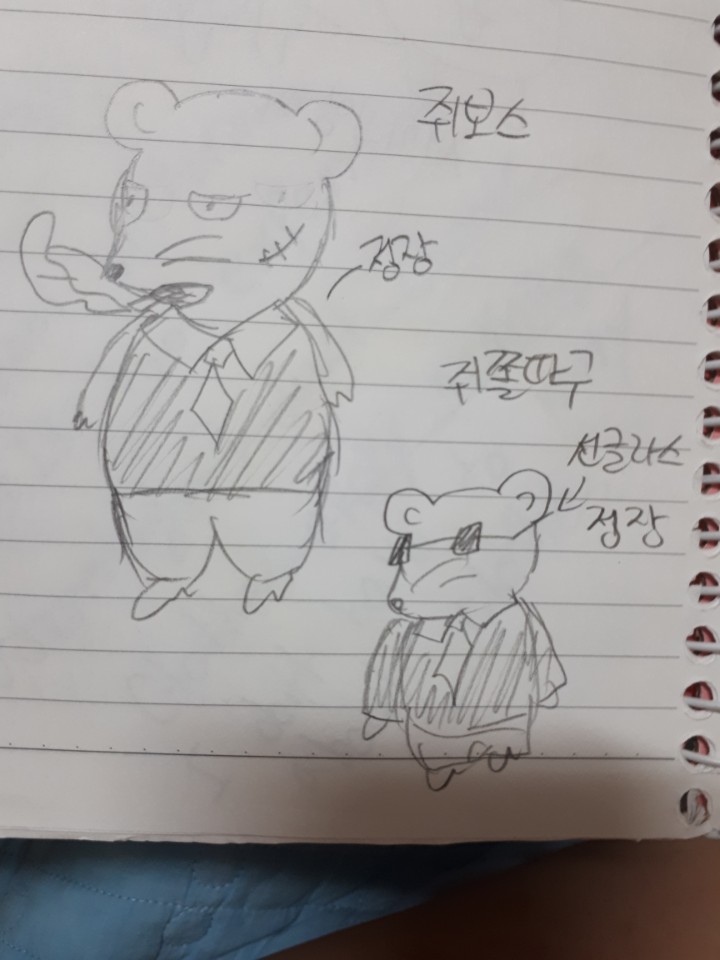 쥐보스
정장
쥐쫄따구
선글라스
정장